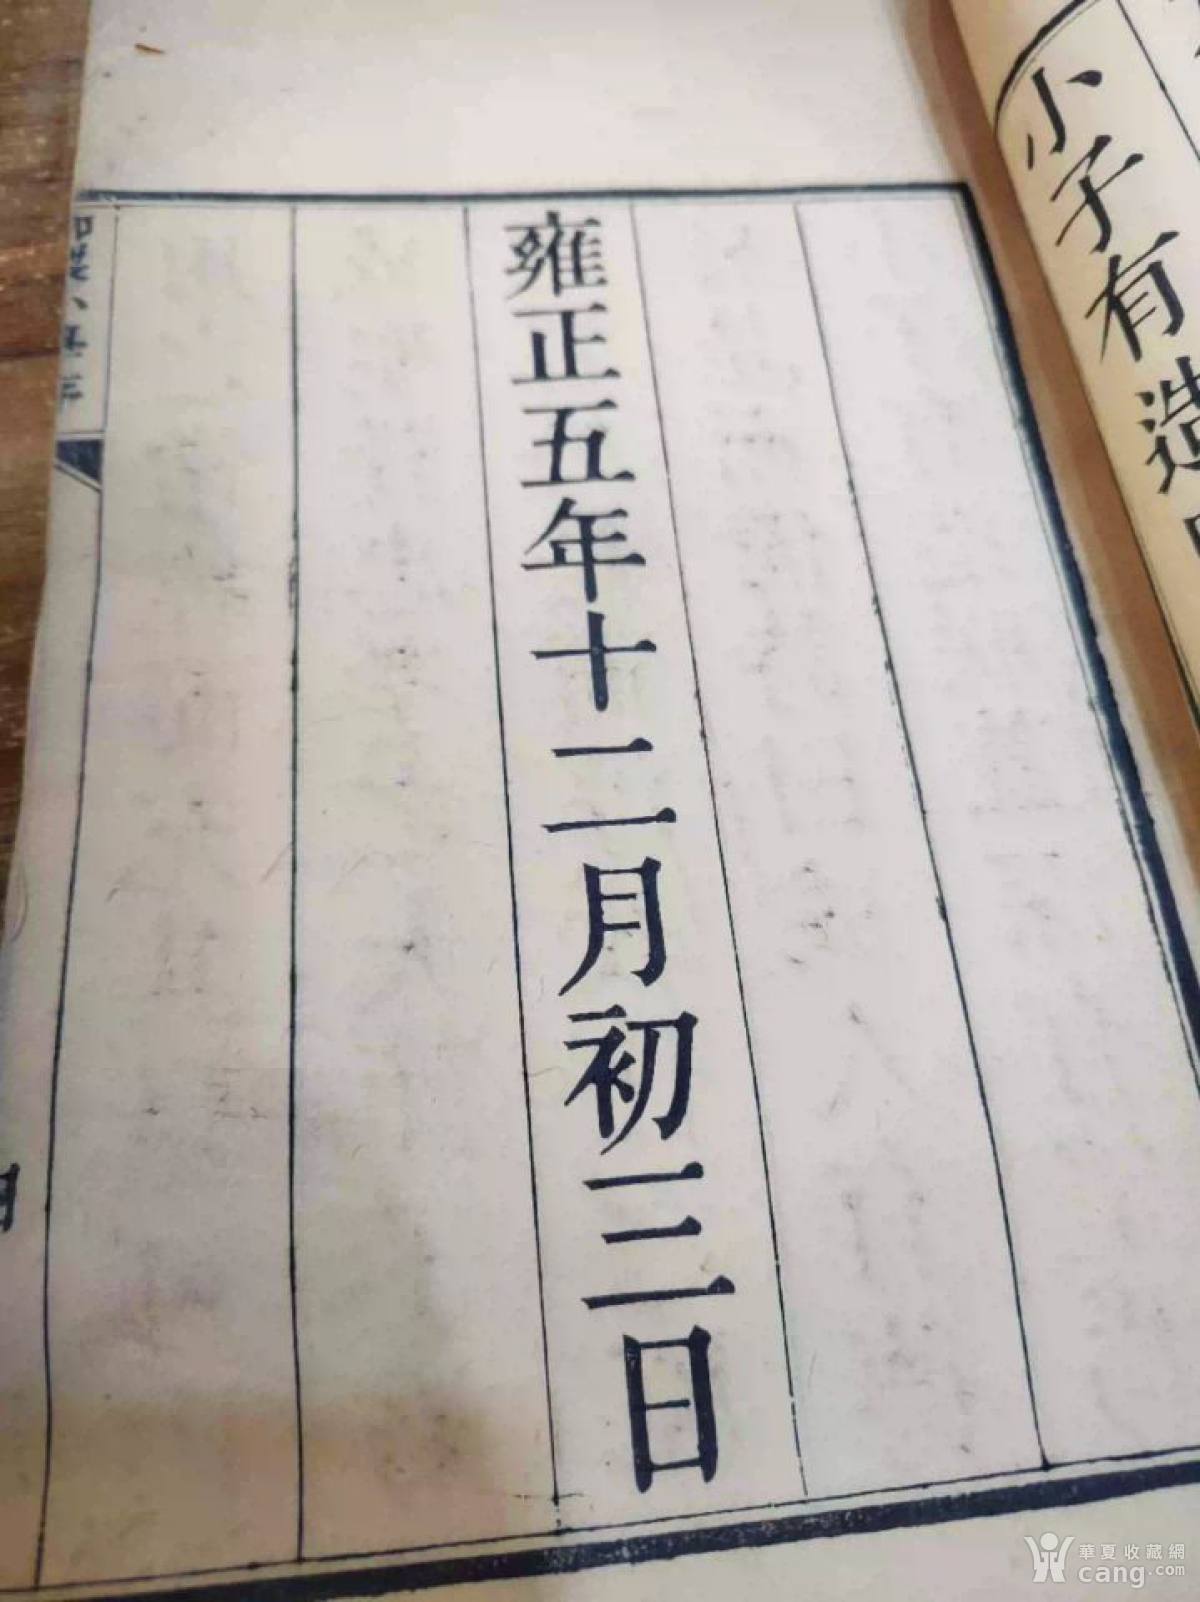 小子有造
雍正五年十二月初三日
華夏收藏網
cang.com